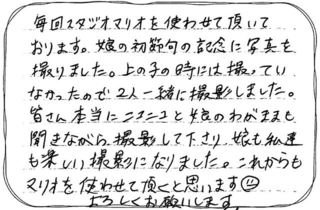 毎回スタジオマリオを使わせて頂いて
おります。娘の初節句の記念に写真を
撮りました。上の子の時には撮ってい
なかったので2人一緒に撮影しました。
皆さん本当にニコニコと娘のわがままも
聞きながら撮影して下さり、娘も私達
も楽しい撮影になりました。これからも
マリオを使わせて頂くと思います
よろしくお願いします。